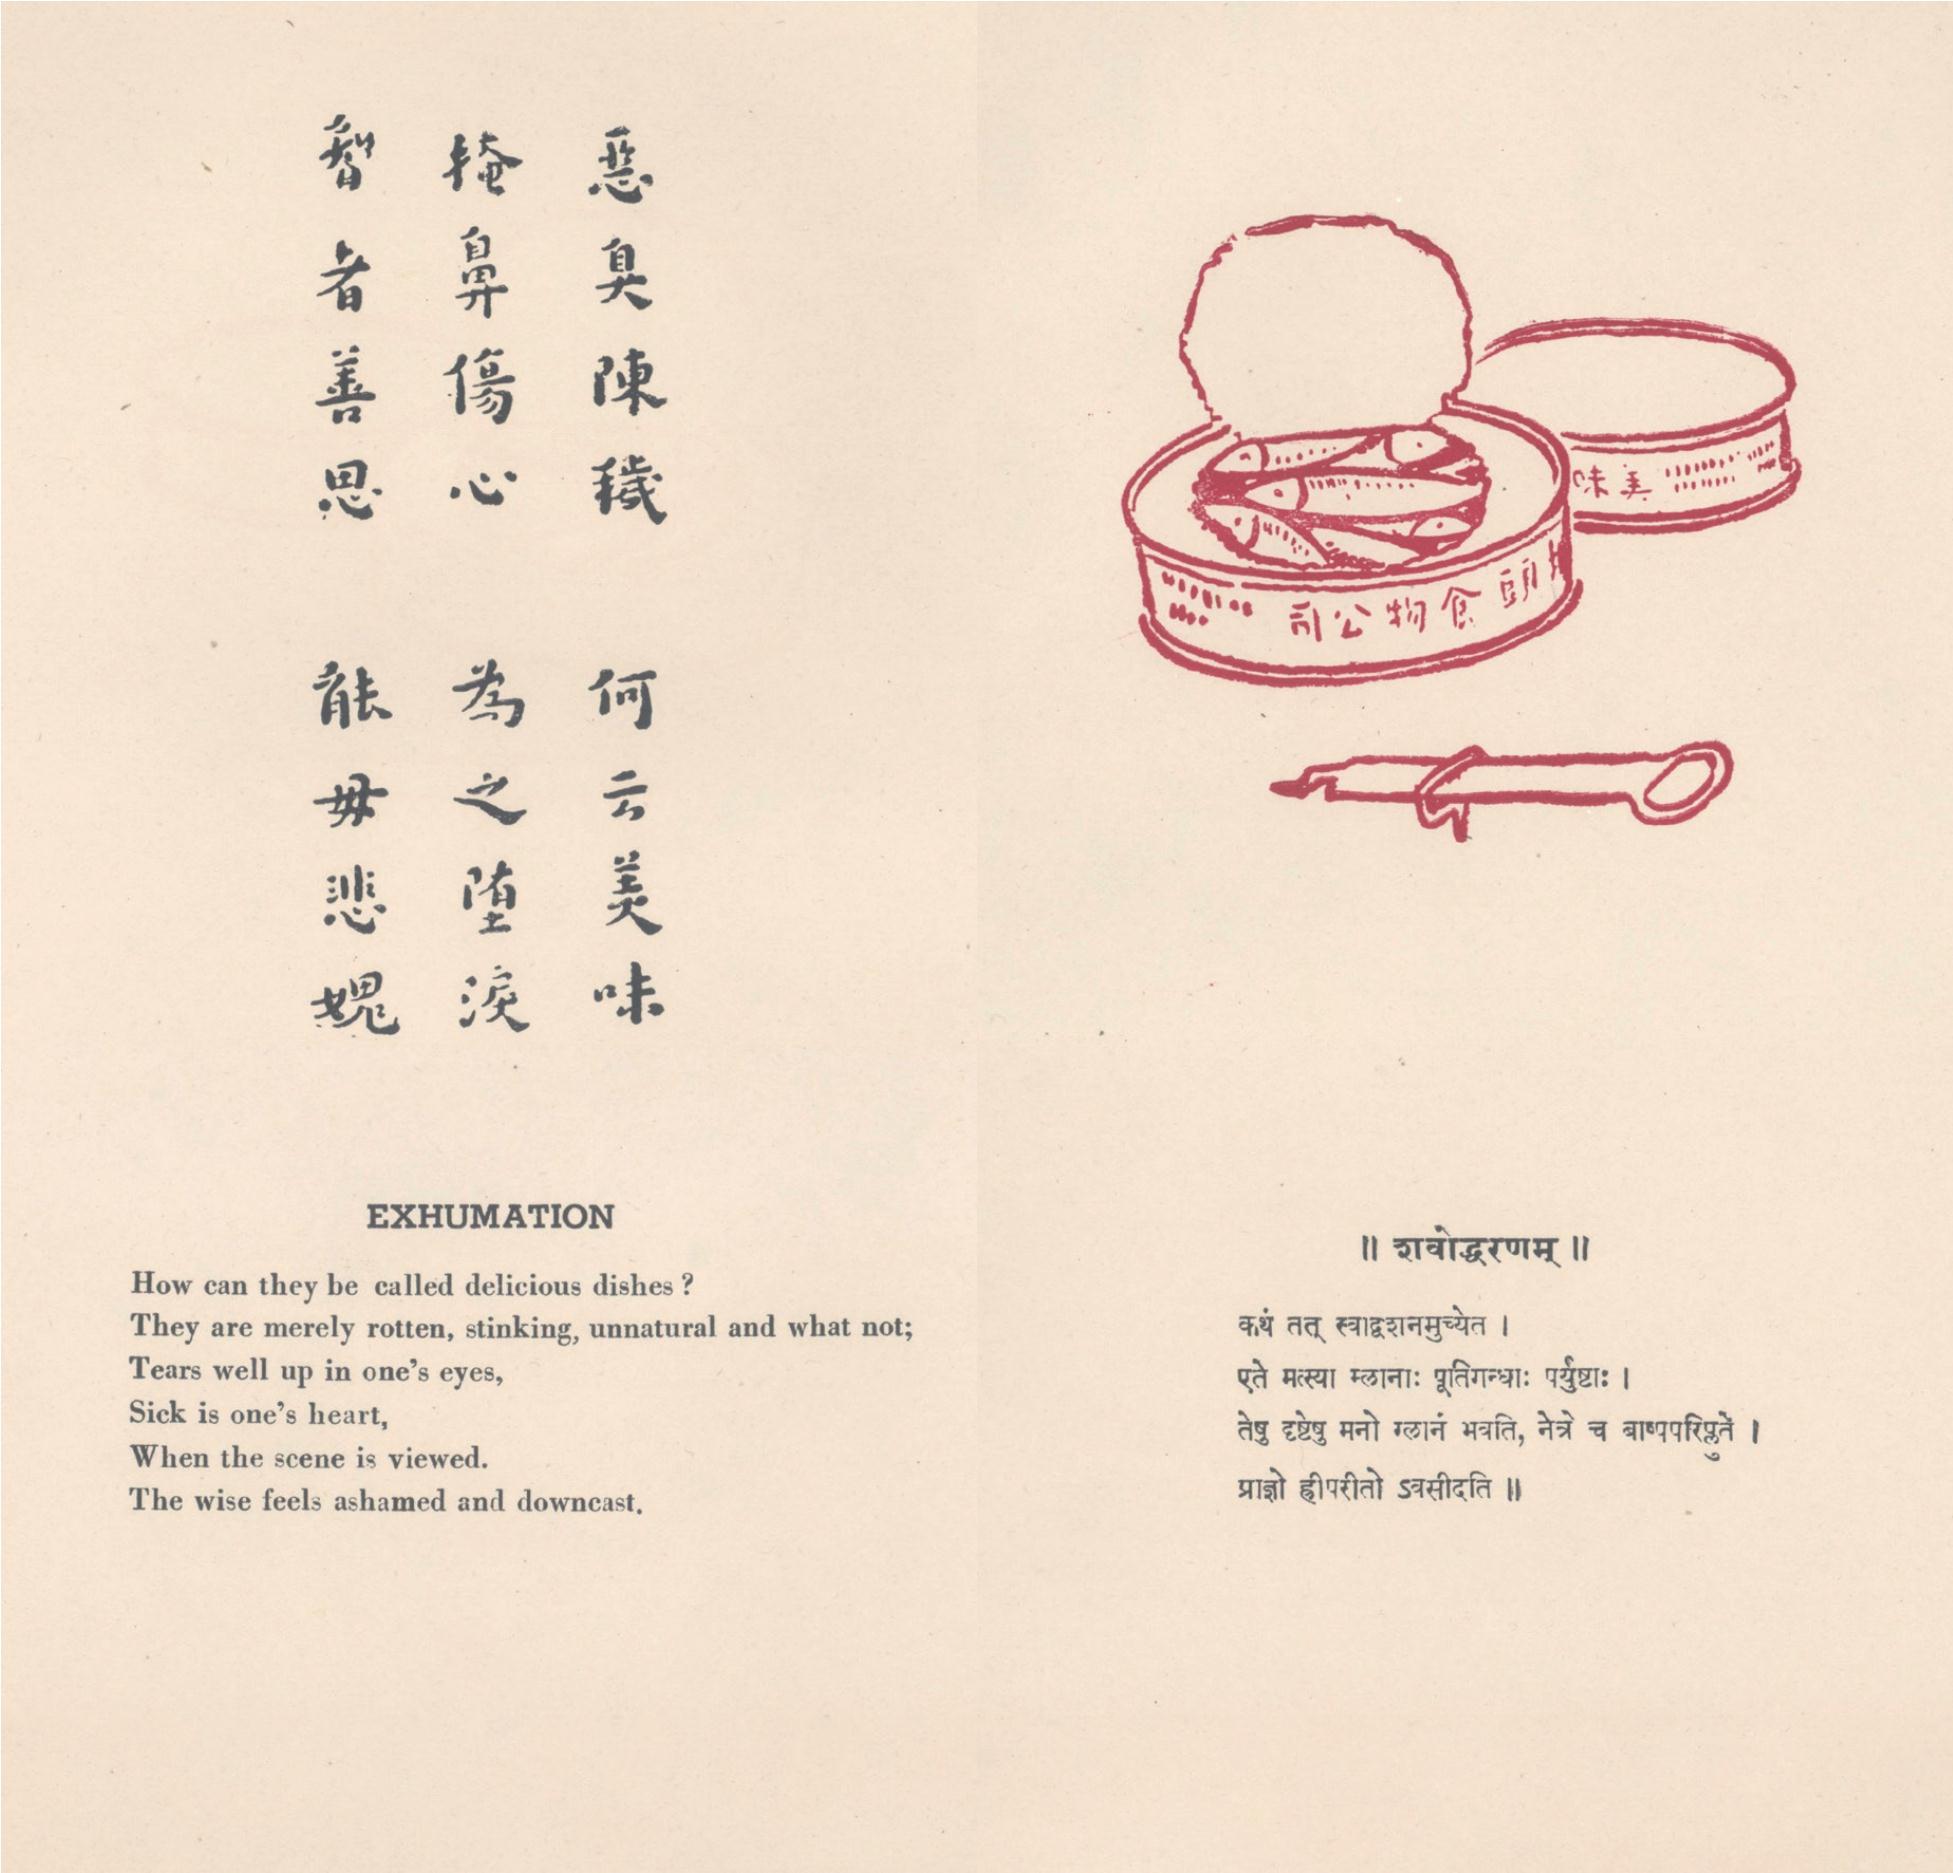 惡臭陳穢 何云美味
掩鼻傷心 為之堕淚
智者善思 能毋悲媿
EXHUMATION
How can they be called delicious dishes?
They are merely rotten, stinking, unnatural and what not;
Tears well up in one's eyes,
Sick is one's heart,
When the scene is viewed.
The wise feels ashamed and downcast.
美味
頭食物公司
॥ शवोद्धरणम् ॥
कथं तत् स्वाद्वशनमुच्येत ।
एते मत्स्या म्लानाः पूतिगन्धाः पर्युष्टाः ।
तेषु दृष्टेषु मनो ग्लानं भवति, नेत्रे च बाष्पपरिप्लुते ।
प्राज्ञो ह्रीपरीतो ऽवसीदति ॥